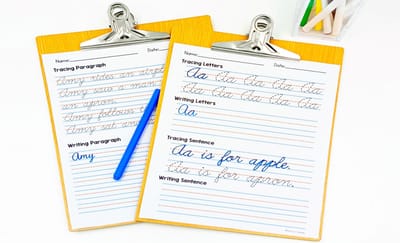 Name Date
Tracing Paragraph
Amy rides an
Amy saw a man
an apron.
Amy follows
Amy and
Writing Paragraph
Amy
Name Date
Tracing Letters
Aa Aa Aa Aa Aa
Aa Aa Aa Aa Aa
Writing Letters
Aa
Tracing Sentence
Aa is for apple.
Aa is for apron.
Writing Sentence